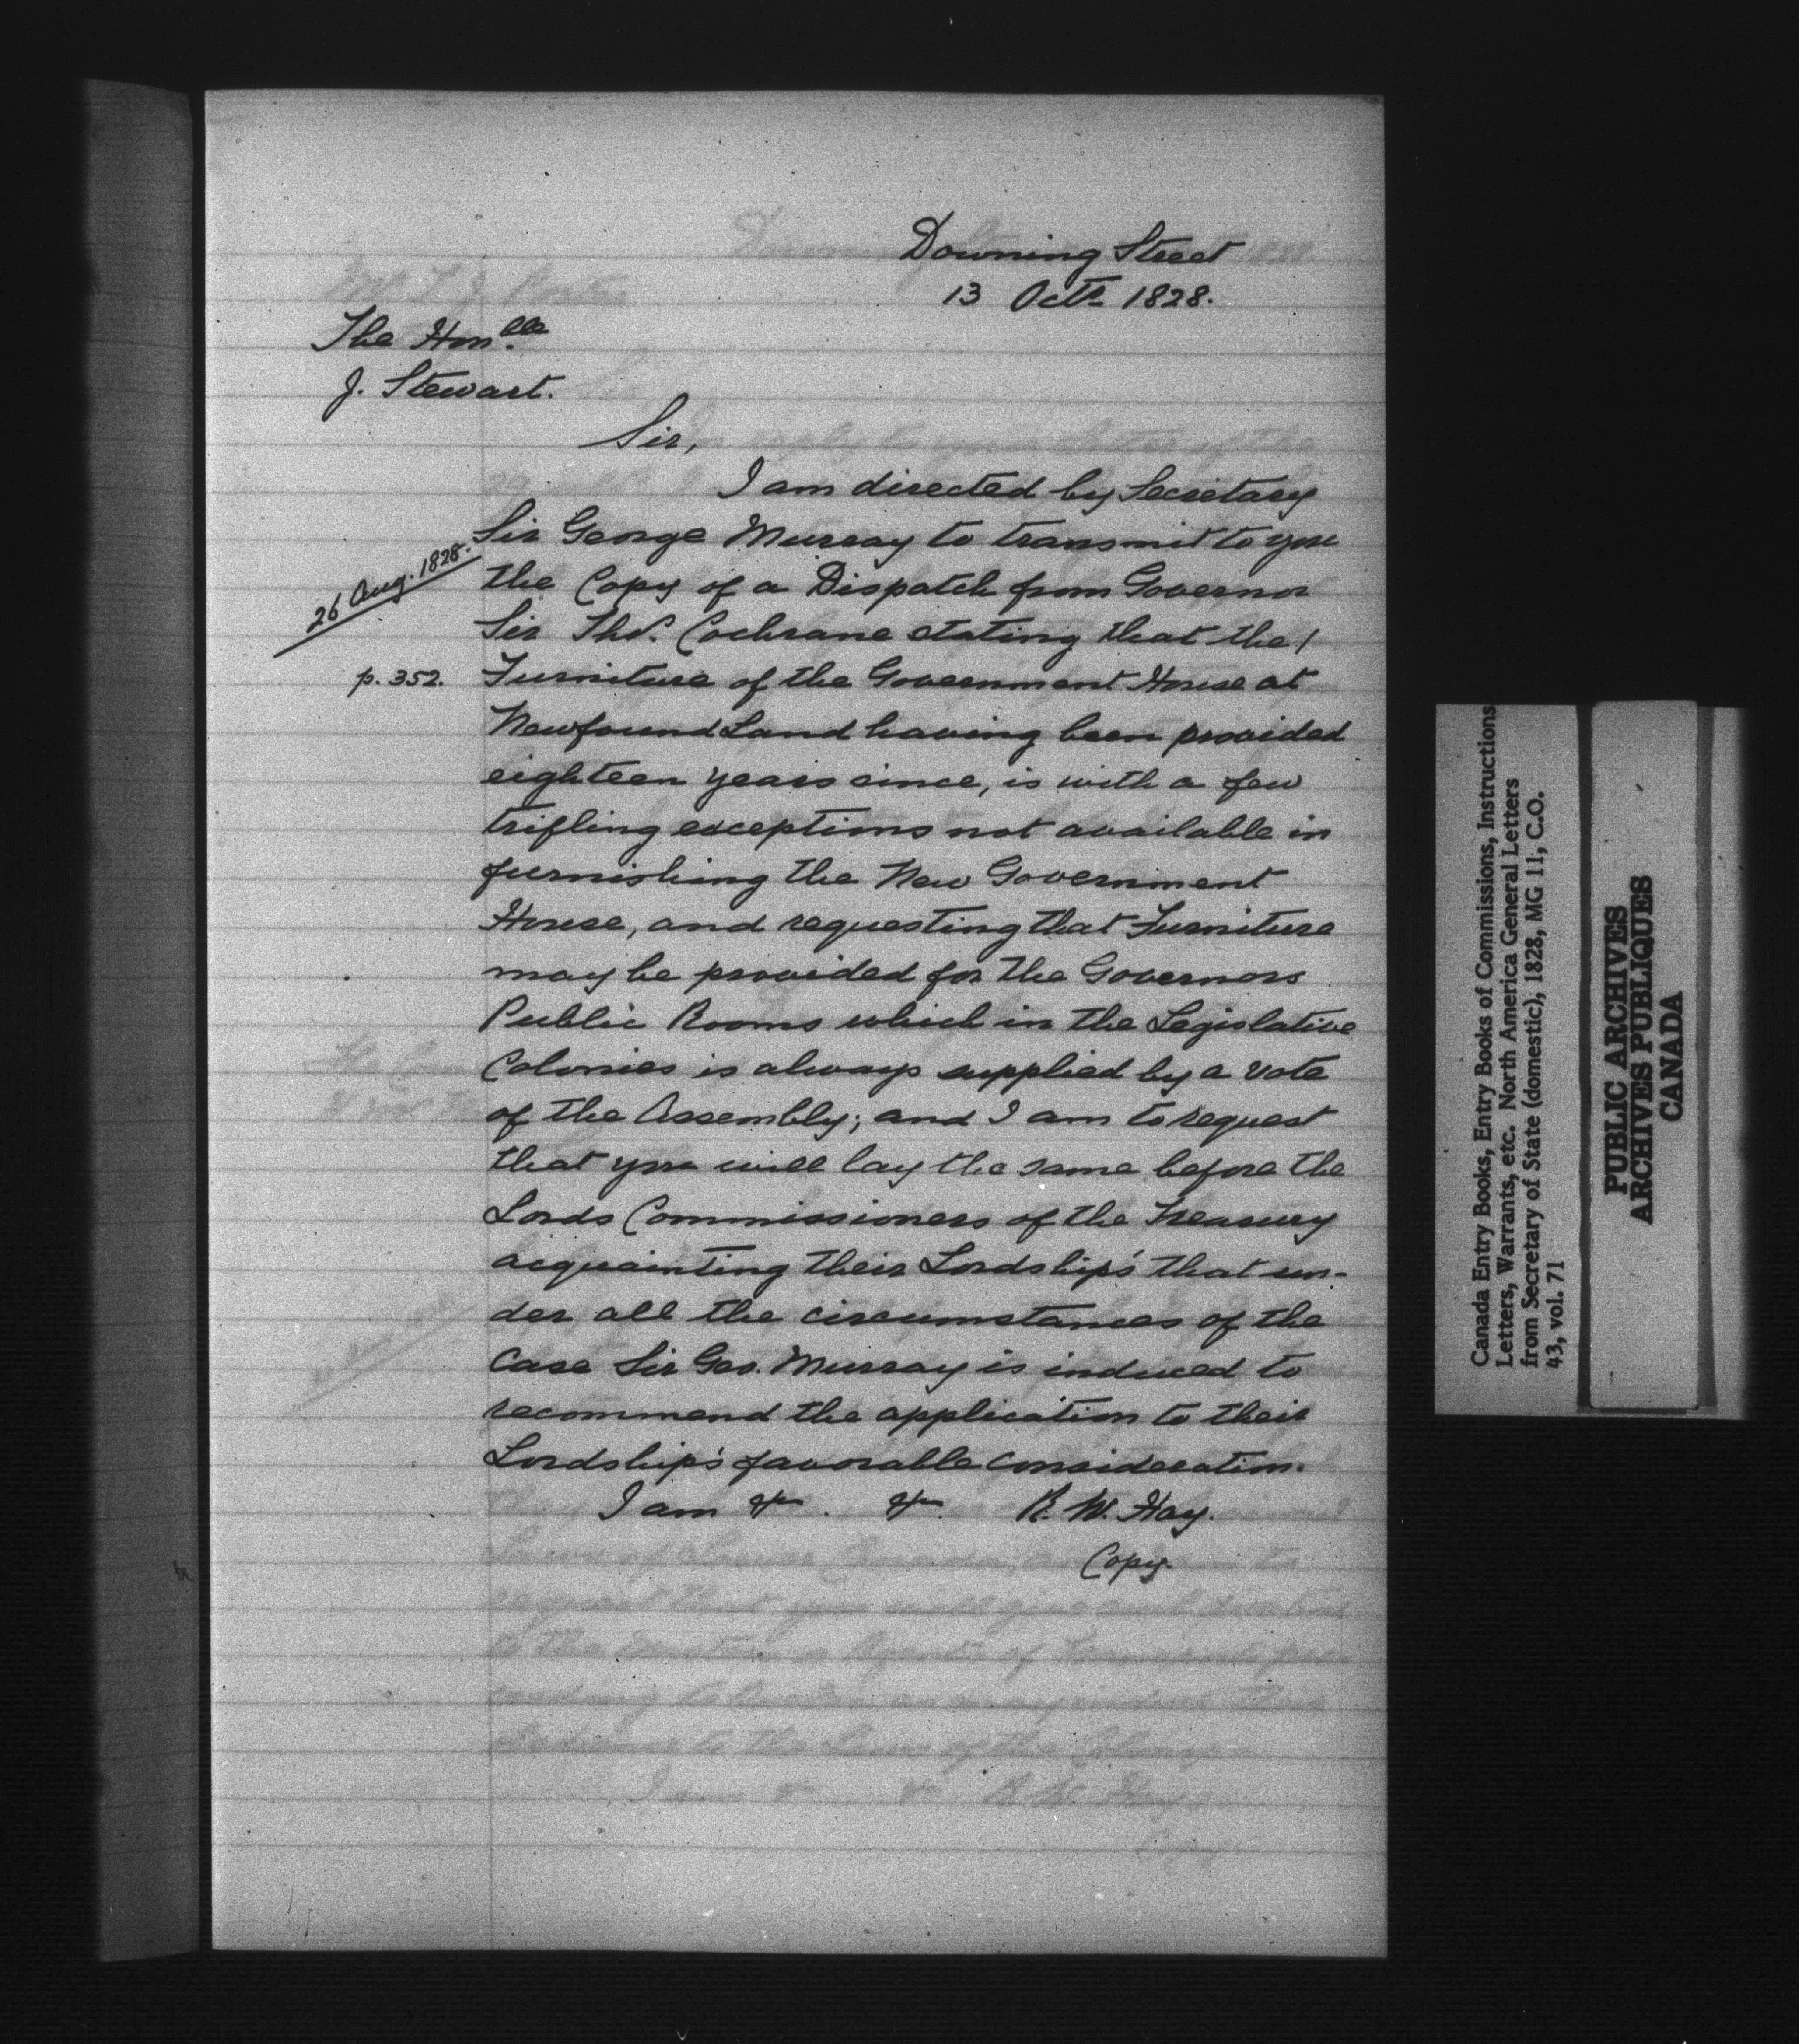 Downing Street
13 Octr 1828.
The Honble
J. Stewart.
Sir,
I am directed by Secretary
Sir George Murray to transmit to you
26 Aug. 1828.
the Copy of a Dispatch from Governor
Sir Thos. Cochrane stating that the /
p. 352.
Furniture of the Government House at
NewfoundLand having been provided
eighteen years since, is with a few
trifling exceptions not available in
furnishing the New Government
House, and requesting that Furniture
may be provided for the Governors
Public Rooms which in the Legislative
Colonies is always supplied by a vote
of the Assembly; and I am to request
that you will lay the same before the
Lords Commissioners of the Treasury
acquainting their Lordship's that un-
der all the circumstances of the
Case Sir Geo. Murray is induced to
recommend the application to their
Lordship's favorable consideration.
I am &c. &c. R. W. Hay.
Copy.
Canada Entry Books, Entry Books of Commissions, Instructions
Letters, Warrants, etc. North America General Letters
from Secretary of State (domestic), 1828, MG 11, C.O.
43, vol. 71
PUBLIC ARCHIVES
ARCHIVES PUBLIQUES
CANADA